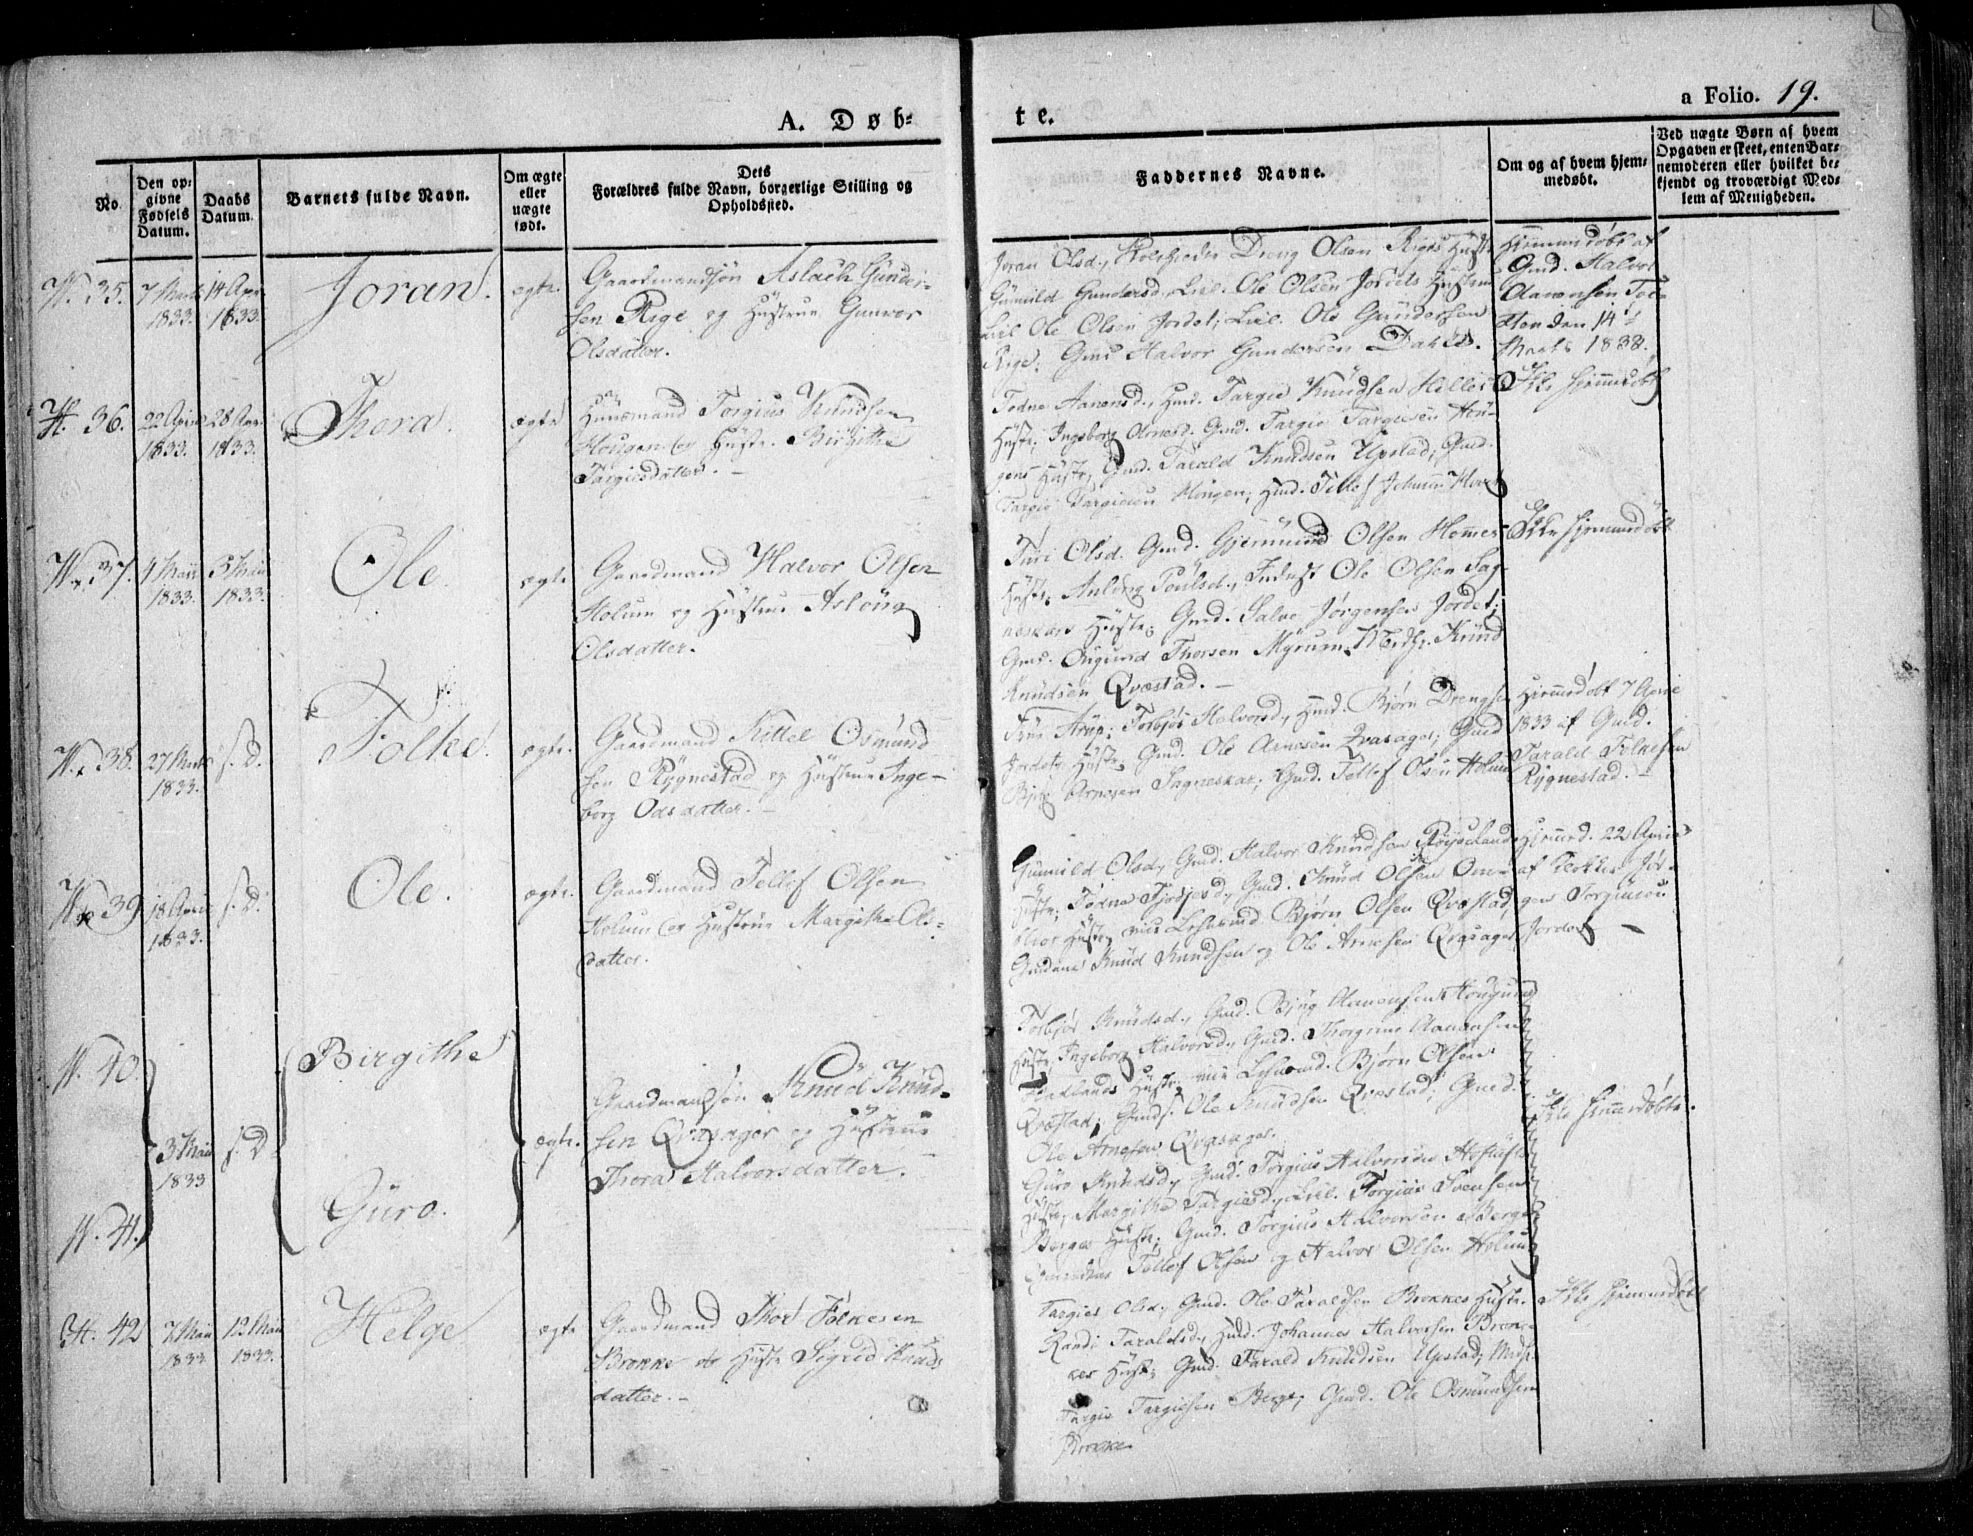 a Folio. 19.
A. Døb-
te.
No.
Den op-
givne
Fødsels
Datum.
Daabs
Datum.
Barnets fulde Navn.
Om ægte
eller
uægte
født.
Dets
Forældres fulde Navn, borgerlige Stilling og
Opholdssted.
Faddernes Navne.
Om og af hvem hjem-
medøbt.
Ved uægte Børn af hvem
Opgaven er skeet, enten Bar-
nemoderen eller hvilket be-
kjendt og troværdigt Med-
lem af Menigheden.
N. 35.
7 Marts
1833.
14 Apr.
1833
Joran.
ægte.
Gaardmandsøn Aslach Gunder-
sen Rige og Hustrue Gunvor
Olsdatter.
Joran Olsd., Dreng Olsen Riges Hustr.
Gunnild Gundersd., Ole Olsen Jordets Hustrue
Ole Olsen Jordet; Ole Gundersen
Rige; Gmd. Halvor Gundersen Dahle.
Hjemmedøbt af
Gmd. Halvor
Aanensen
den 14
Marts 1833.
N. 36.
22 April
1833.
28 Apr.
1833.
Thora.
ægte
Huusmand Torgius Knudsen
Hougen og Hustr. Birgitha
Targiesdatter.
Todne Aanensd., Hmd. Targie Knudsen
Hustr; Ingeborg Arnesd. Gmd. Targie Targiesen Hou-
gens Hustr, Gmd. Tarald Knudsen Upstad, Gmd.
Targie Targiesen Hougen, Hmd. Tellef
Ikke hjemmedøbt
N. 37.
1 Mai
1833.
5 Mai
1833.
Ole.
ægte
Gaardmand Halvor Olsen
Holum og Hustrue Aslöug
Olsdatter.
Turi Olsd. Gmd. Gjermund Olsen Hommes
Hustr; Poulsd., Ole Olsen Sag-
neskars Hustr; Gmd. Salve Jørgensen Jordet;
Gmd. Thorsen Myrum, Knud
Knudsen Qvæstad.
Ikke hjemmedøbt
N. 38.
27 Marts
1833.
s. D.
Folke.
ægte.
Gaardmand Kittel Osmund
sen Rygnestad og Hustrue Inge-
borg Odsdatter.
Torbjør Halvorsd, Hmd. Bjørn Drengsen
Jordets Hustr, Gmd. Ole Arnesen Qvasager; Gmd
Arnesen Sagneskar; Gmd. Tellef Olsen Holum
Hjemmedøbt 7 April
1833 af Gmd.
Tarald Folkesen
Rygnestad.
N. 39
18 April
1833.
s. D.
Ole.
ægte.
Gaardmand Tellef Olsen
Holum og Hustrue Margithe Ols-
datter.
Gunnild Olsd, Gmd. Halvor Knudsen Røyselands
Hustr; Todne Gmd. Knud Olsen
Hustr, Bjørn Olsen Qvæstad,
Gmdene Knud Knudsen og Ole Arnesen Qvasager
Hjemmed. 22 April
af Jør-
gen Torgiusen
Jordet
N. 40.
3 Mai
1833
s. D.
Birgithe
N. 41.
Guro.
ægte.
Gaardmandsøn Knud Knud-
sen Qvasager og Hustrue
Thora Halvorsdatter.
Torbjør Knudsd., Gmd. Aanensen
Hustr, Ingeborg Halvorsd, Gmd. Aanensen
Hustr, Bjørn Olsen
Qvæstad; Ole Knudsen Qvæstad; Gmd.
Ole Arnesen Qvasager.
Guro Knudsd, Gmd. Torgius Halvorsen
Hustr, Margithe Targiesd, Torgius Svensen
Berges Hustr; Gmd. Torgius Halvorsen Berge
Gmdene Tellef Olsen og Halvor Olsen Holum
Ikke hjemmedøbte.
N. 42
7 Mai
1833.
12 Mai
1833.
Helge
ægte
Gaardmand Thor Folkesen
Brokke og Hustr. Sigrid Knuds-
datter.
Targier Olsd, Gmd. Ole Taraldsen Brokkes Hustr.
Randi Taraldsd, Johannes Halvorsen Brok-
kes Hustr; Gmd. Tarald Knudsen Upstad;
Targie Targiesen Berge, Gmd. Ole Osmundsen
Brokke
Ikke hjemmedøbt